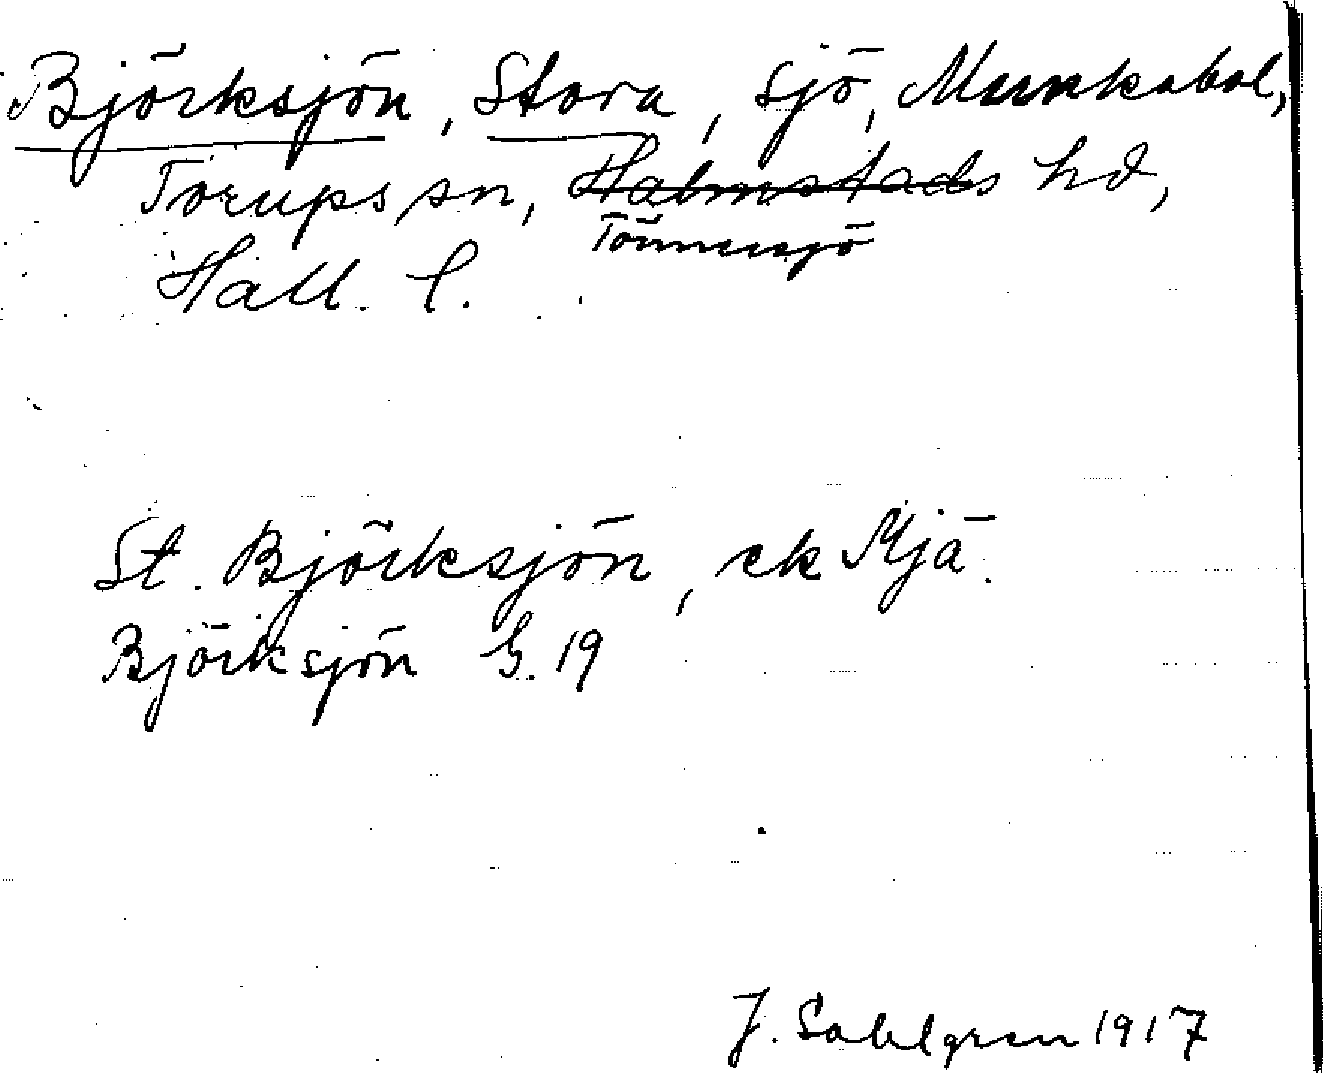 Björksjön, Stora, sjö, Munkabol,
Torups sn, Halmstads hd,
Tönnersjö
Hall. l.
St. Björksjön, ek Mjä.
Björksjön G. 19
J. Sahlgren 1917